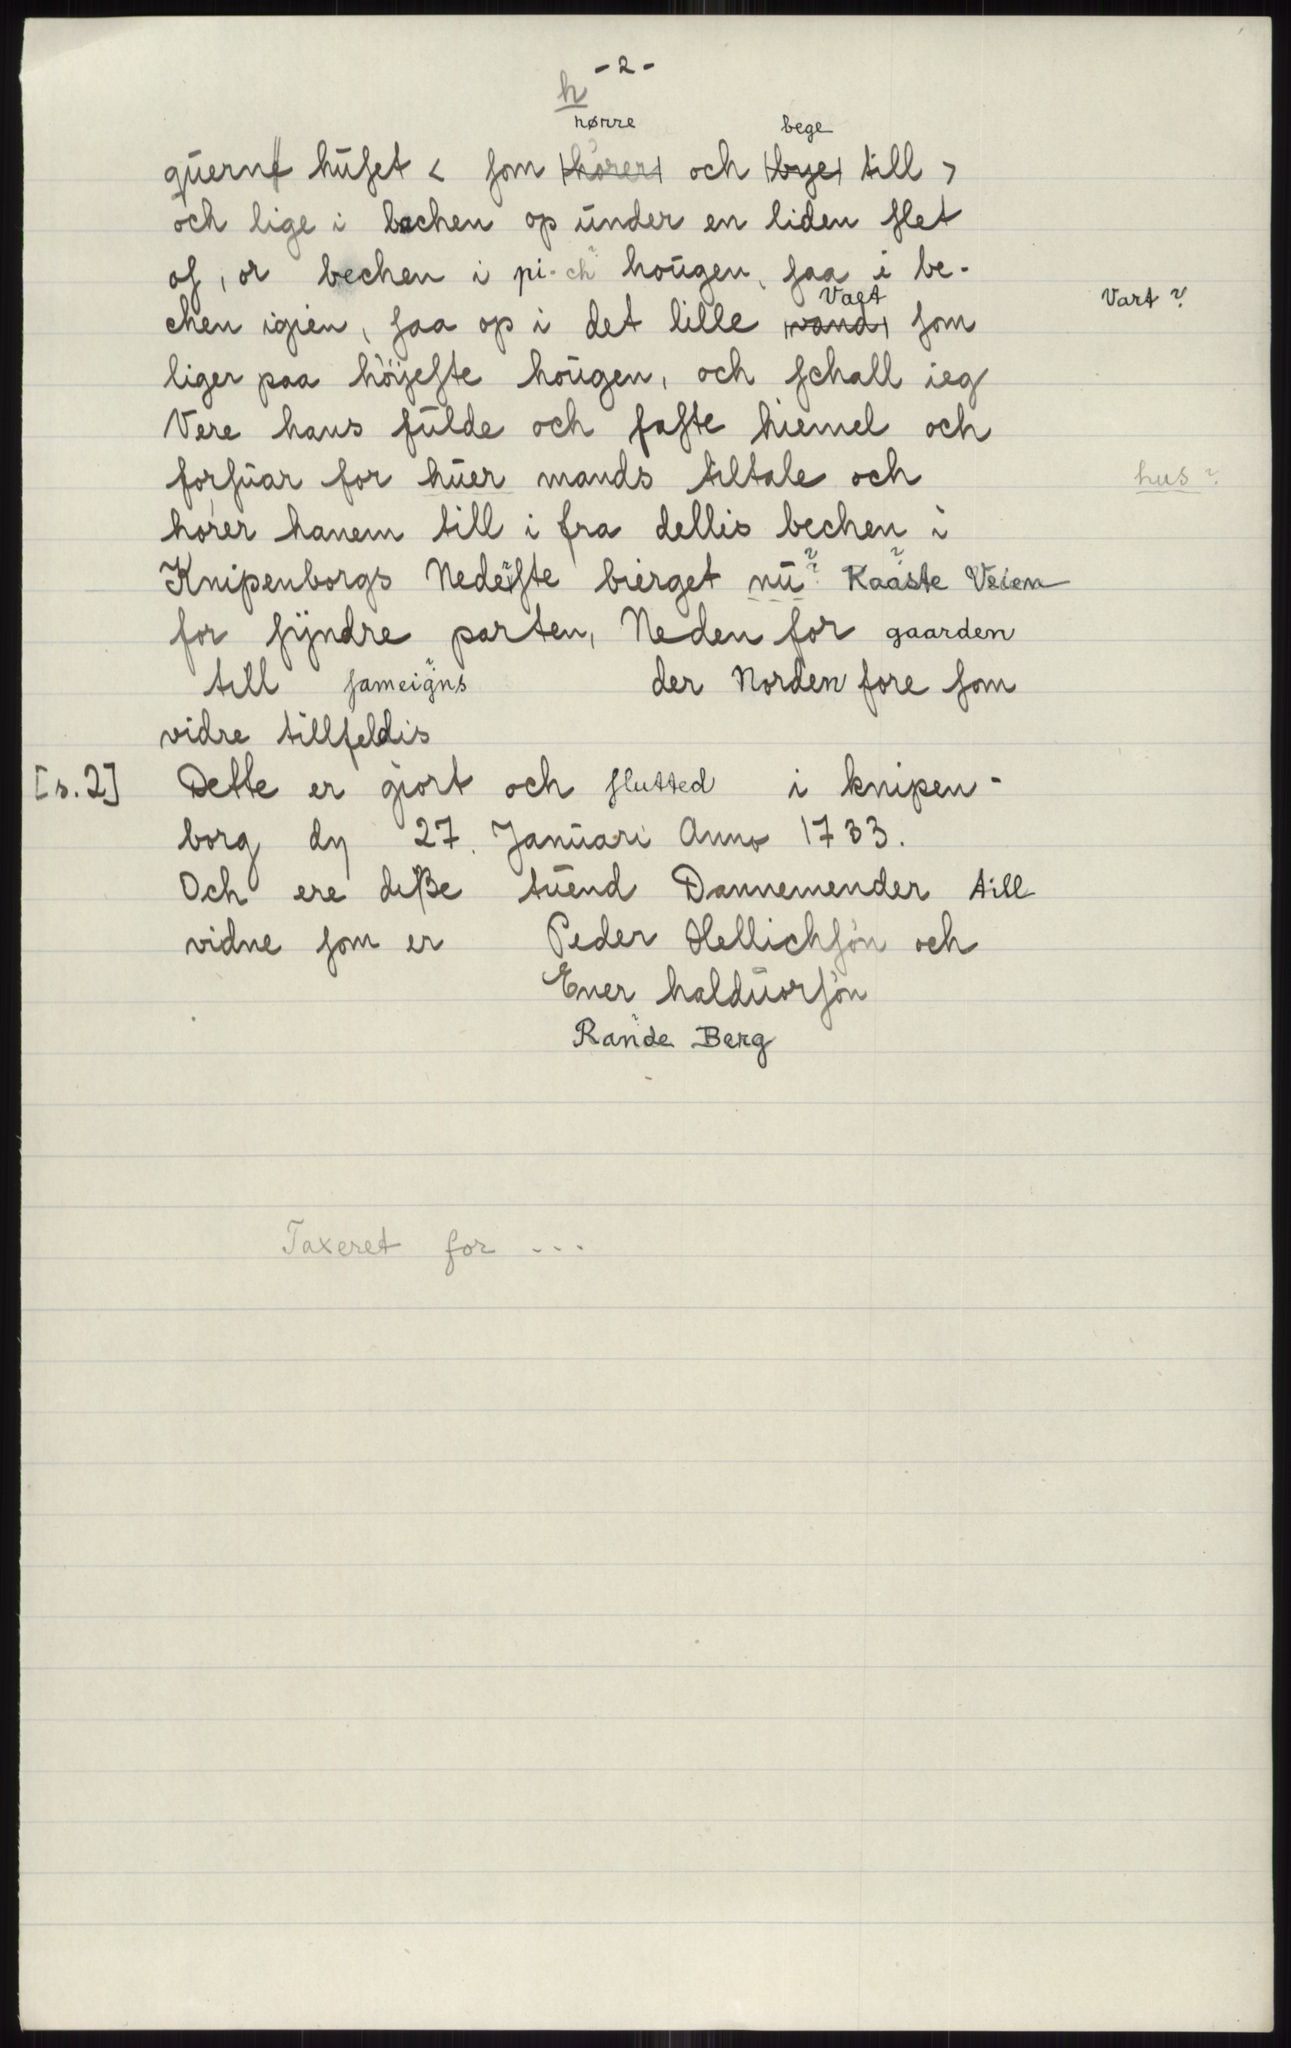 - 2 -
h
nørre bege
qūern huset < som hörer och bye till >
och lige i bechen op ūnder en liden slet
of, or bechen i pi-ch hoūgen, saa i be-
Vact
chen igien, saa op i det lille vand som Vart ?
liger paa höyeste hoūgen, och schall ieg
Vere hans fūlde och faste hiemel och
forsūar for hūer mands tiltale och hus ?
hörer hanem till i fra dellis bechen i
Knipenborgs Nedeste bierget nū ? Kaaste Veien
for syndre parten, Neden for gaarden
till sameigns der Norden fore som
vidre tillfeldis
[s. 2] Dette er giort och slutted i knipen-
borg dy 27. Janūari Anno 1733.
Och ere diße tūend Dannemender till
vidne som er Peder Hellichsön och
Ener haldūorsön
Rande Berg
Taxeret for ...